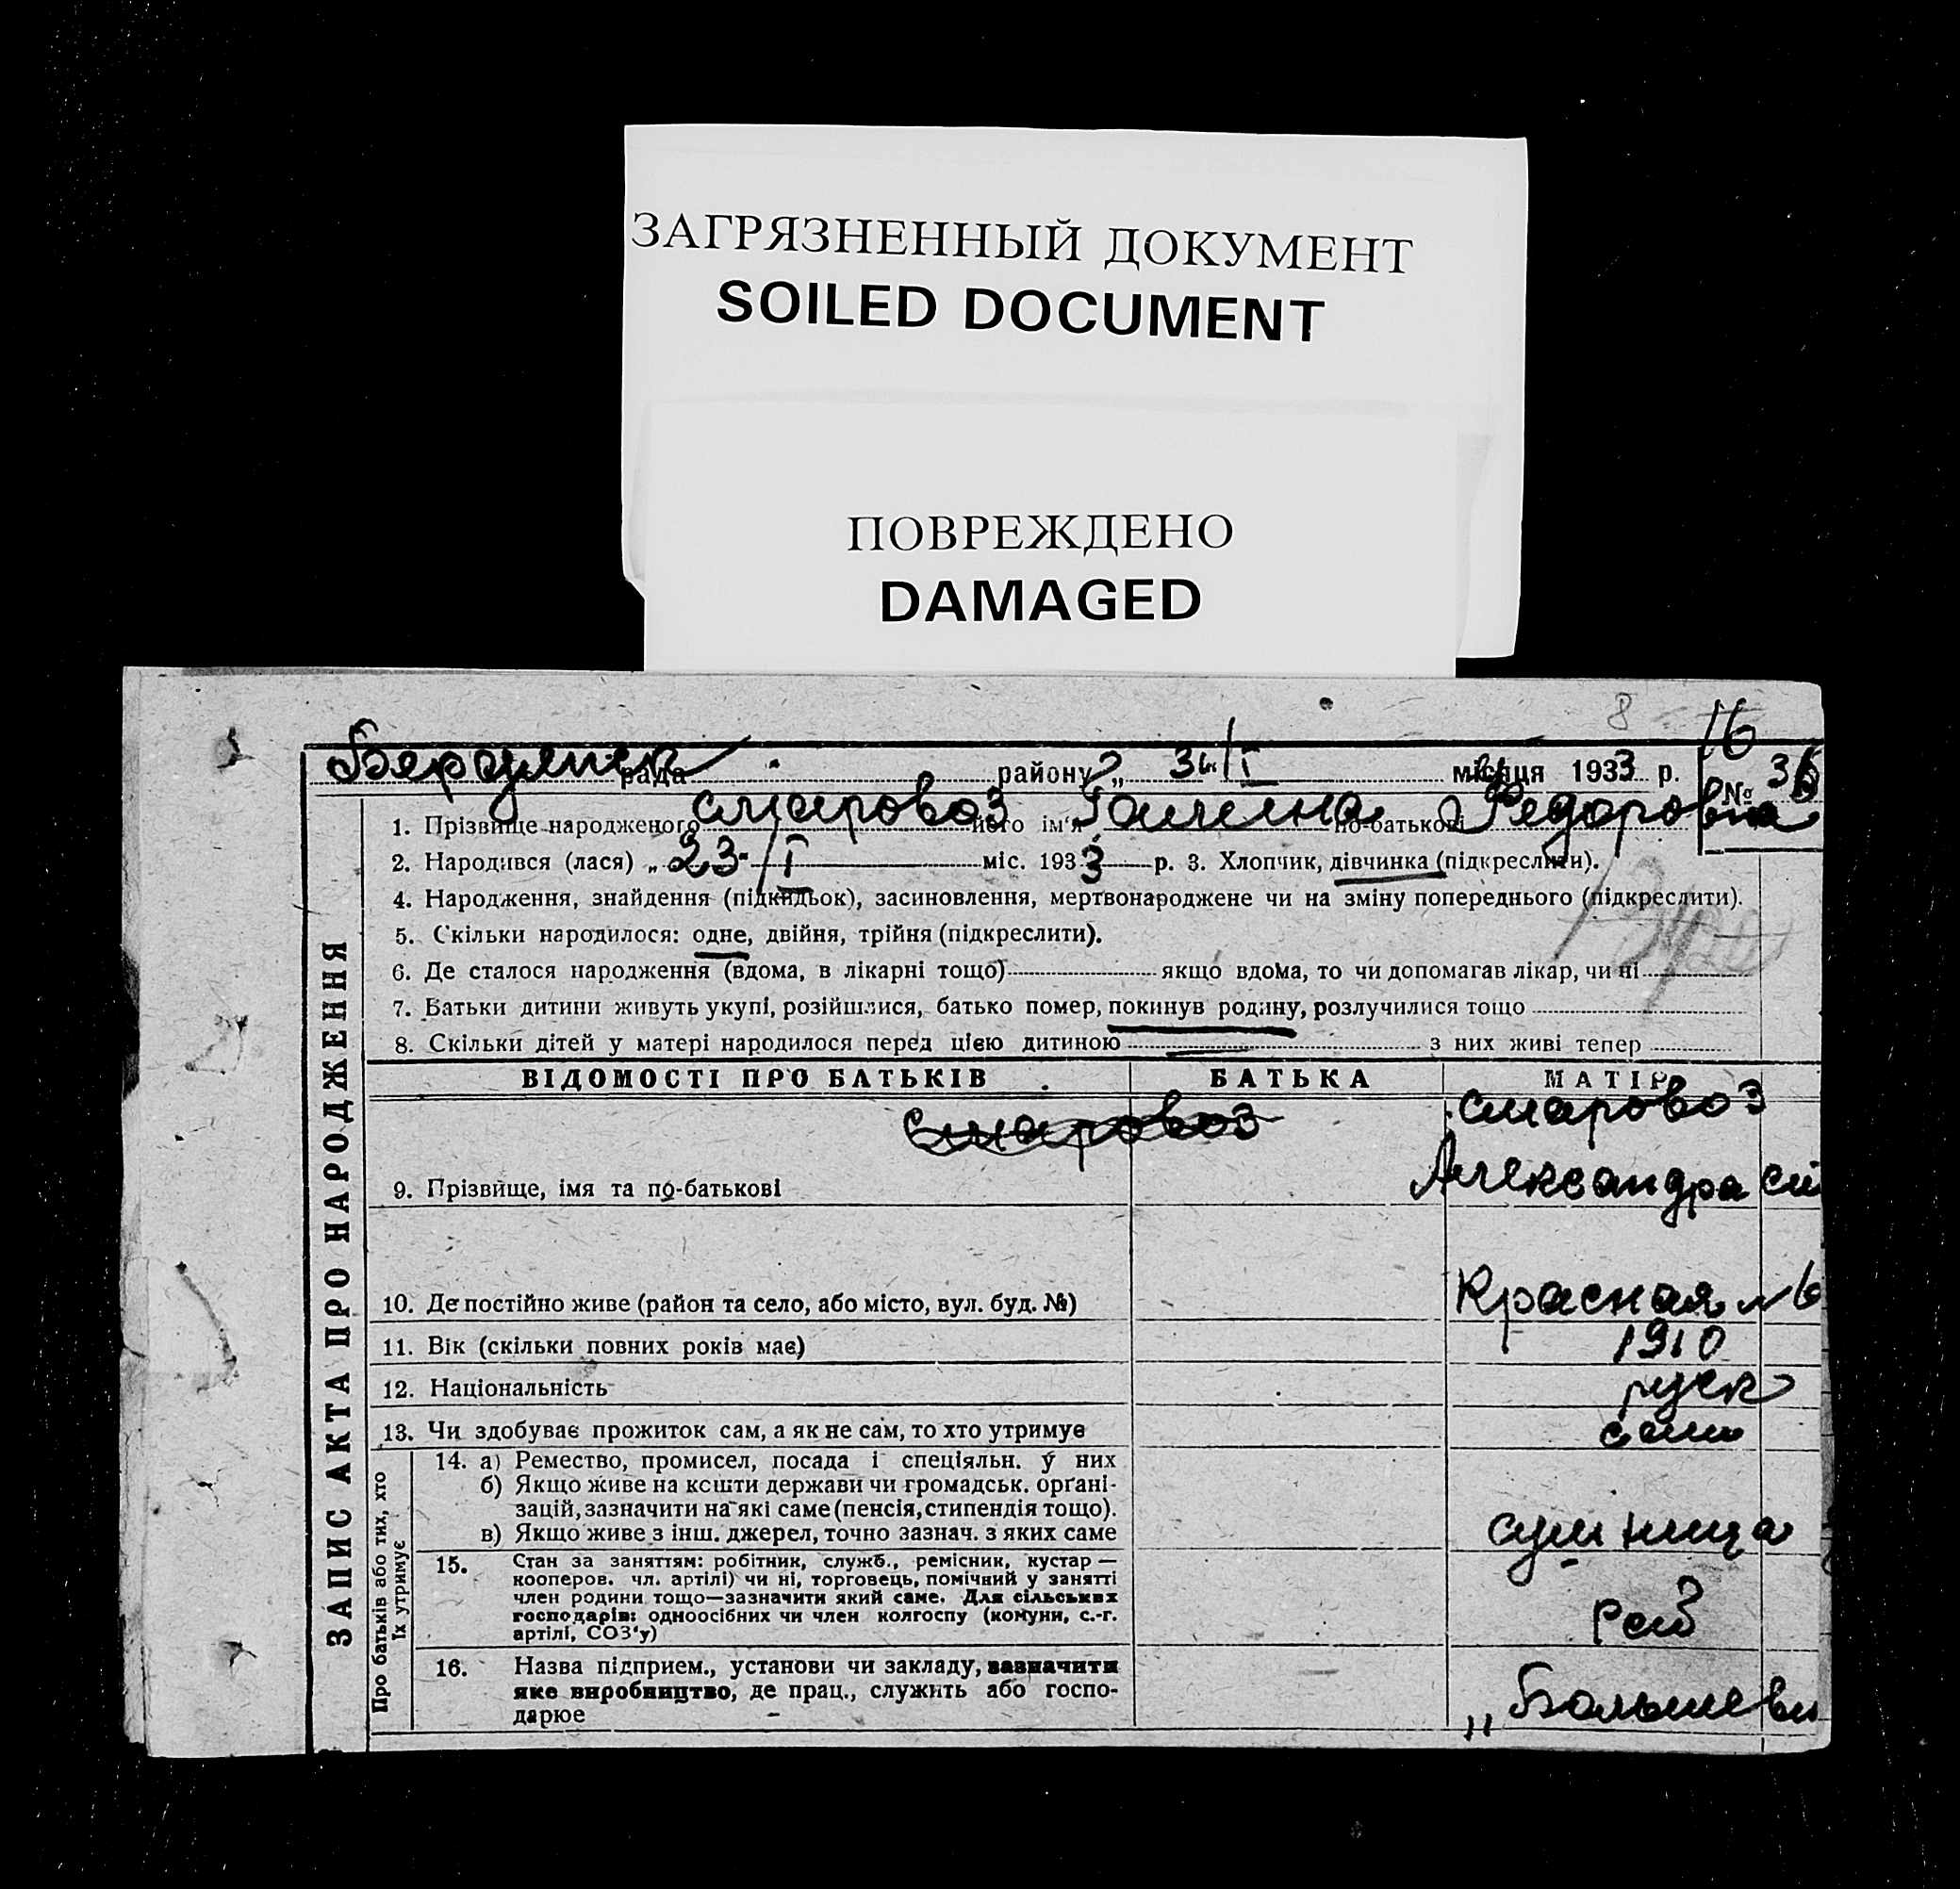 ЗАГРЯЗНЕННЫЙ ДОКУМЕНТ
SOILED DOCUMENT
ПОВРЕЖДЕНО
DAMAGED
8 16
Бердянск рада району „ 31/I місяця 1933 р. № 36
1. Прізвище народженого Старовоз його ім'я Галина по-батькові Федоровна
2. Народився (лася) „23"/I міс. 1933 р. 3. Хлопчик, дівчинка (підкреслити).
4. Народження, знайдення (підкидьок), засиновлення, мертвонароджене чи на зміну попереднього (підкреслити).
5. Скільки народилося: одне, двійня, трійня (підкреслити).
6. Де сталося народження (вдома, в лікарні тощо) якщо вдома, то чи допомагав лікар, чи ні
7. Батьки дитини живуть укупі, розійшлися, батько помер, покинув родину, розлучилися тощо
8. Скільки дітей у матері народилося перед цією дитиною з них живі тепер
ЗАПИС АКТА ПРО НАРОДЖЕННЯ
ВІДОМОСТІ ПРО БАТЬКІВ БАТЬКА МАТІР
Старовоз Старовоз
9. Прізвище, імя та по-батькові Александра
10. Де постійно живе (район та село, або місто, вул. буд. №) Красная № 6
11. Вік (скільки повних років має) 1910
12. Національність руск
13. Чи здобуває прожиток сам, а як не сам, то хто утримує сам
Про батьків або тих, хто їх утримує
14. а) Ремество, промисел, посада і спеціяльн. у них
б) Якщо живе на кошти держави чи громадськ. органі-
зацій, зазначити на які саме (пенсія, стипендія тощо).
в) Якщо живе з інш. джерел, точно зазнач. з яких саме
15. Стан за заняттям: робітник, служб., ремісник, кустар —
кооперов. чл. артілі) чи ні, торговець, помічний у занятті
член родини тощо—зазначити який саме. Для сільських
господарів: одноосібних чи член колгоспу (комуни, с.-г.
артілі, СОЗ'у) раб
16. Назва підприєм., установи чи закладу, зазначити
яке виробництво, де прац., служить або госпо-
дарює „Большеви